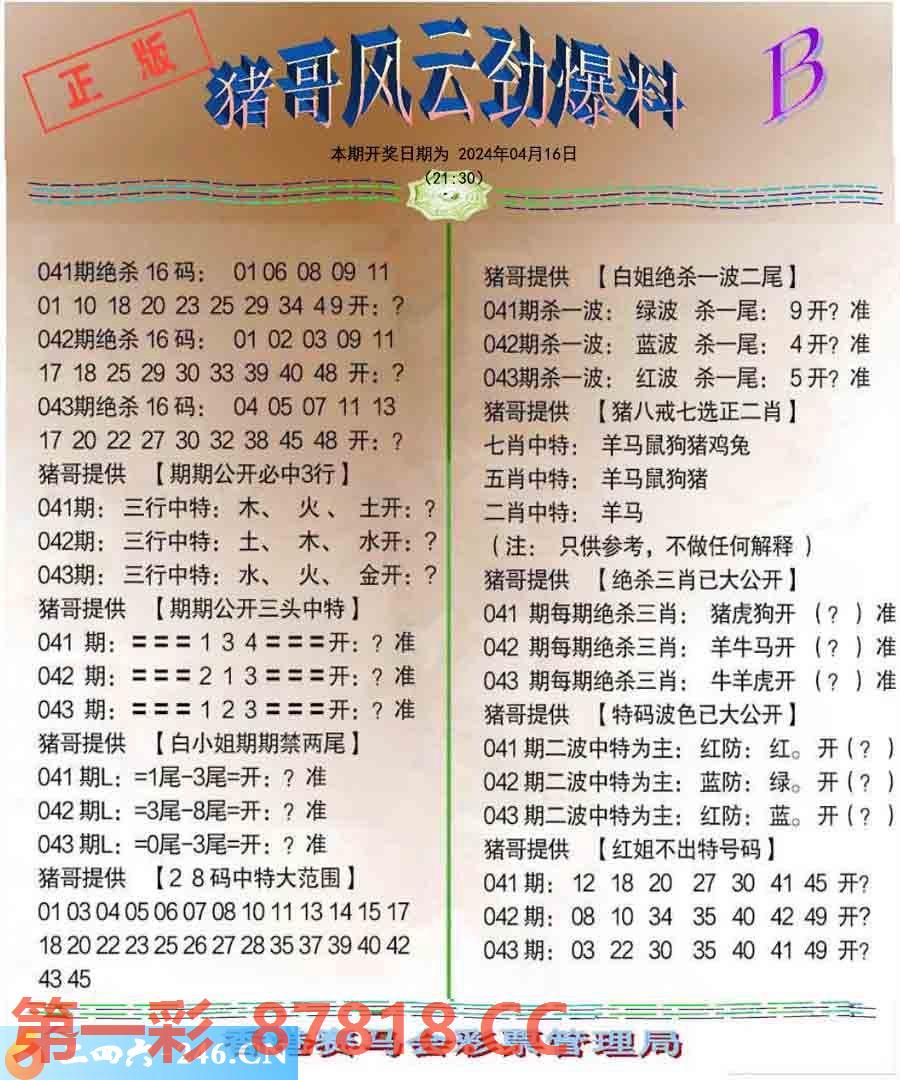 正版
猪哥风云劲爆料
B
本期开奖日期为 2024年04月16日
(21:30)
041期绝杀16码： 01 06 08 09 11
01 10 18 20 23 25 29 34 49开：?
042期绝杀16码： 01 02 03 09 11
17 18 25 29 30 33 39 40 48 开：?
043期绝杀16码： 04 05 07 11 13
17 20 22 27 30 32 38 45 48 开：?
猪哥提供 【期期公开必中3行】
041期：三行中特：木、 火、 土开：?
042期：三行中特：土、 木、 水开：?
043期：三行中特：水、 火、 金开：?
猪哥提供 【期期公开三头中特】
041 期：===1 3 4===开：? 准
042 期：===2 1 3===开：? 准
043 期：===1 2 3===开：? 准
猪哥提供 【白小姐期期禁两尾】
041期L：=1尾-3尾=开：? 准
042期L：=3尾-8尾=开：? 准
043期L：=0尾-3尾=开：? 准
猪哥提供 【28码中特大范围】
01 03 04 05 06 07 08 10 11 13 14 15 17
18 20 22 23 25 26 27 28 35 37 39 40 42
43 45
猪哥提供 【白姐绝杀一波二尾】
041期杀一波： 绿波 杀一尾： 9开? 准
042期杀一波： 蓝波 杀一尾： 4开? 准
043期杀一波： 红波 杀一尾： 5开? 准
猪哥提供 【猪八戒七选正二肖】
七肖中特： 羊马鼠狗猪鸡兔
五肖中特： 羊马鼠狗猪
二肖中特： 羊马
（注： 只供参考，不做任何解释 ）
猪哥提供 【绝杀三肖已大公开】
041 期每期绝杀三肖： 猪虎狗开 （? ）准
042 期每期绝杀三肖： 羊牛马开 （? ）准
043 期每期绝杀三肖： 牛羊虎开 （? ）准
猪哥提供 【特码波色已大公开】
041期二波中特为主：红防：红。开（? ）
042期二波中特为主：蓝防：绿。开（? ）
043期二波中特为主：红防：蓝。开（? ）
猪哥提供 【红姐不出特号码】
041期： 12 18 20 27 30 41 45 开?
042期： 08 10 34 35 40 42 49 开?
043期： 03 22 30 35 40 41 49 开?
第一彩 87818.CC
二四六 246.CN
香港赛马会彩票管理局